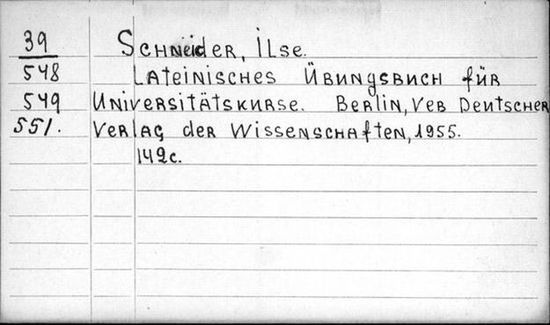 39 Schneider, Ilse.
548 Lateinisches Übungsbuch für
549 Universitätskurse. Berlin, Veb Deutscher
551. Verlag der Wissenschaften, 1955.
149c.